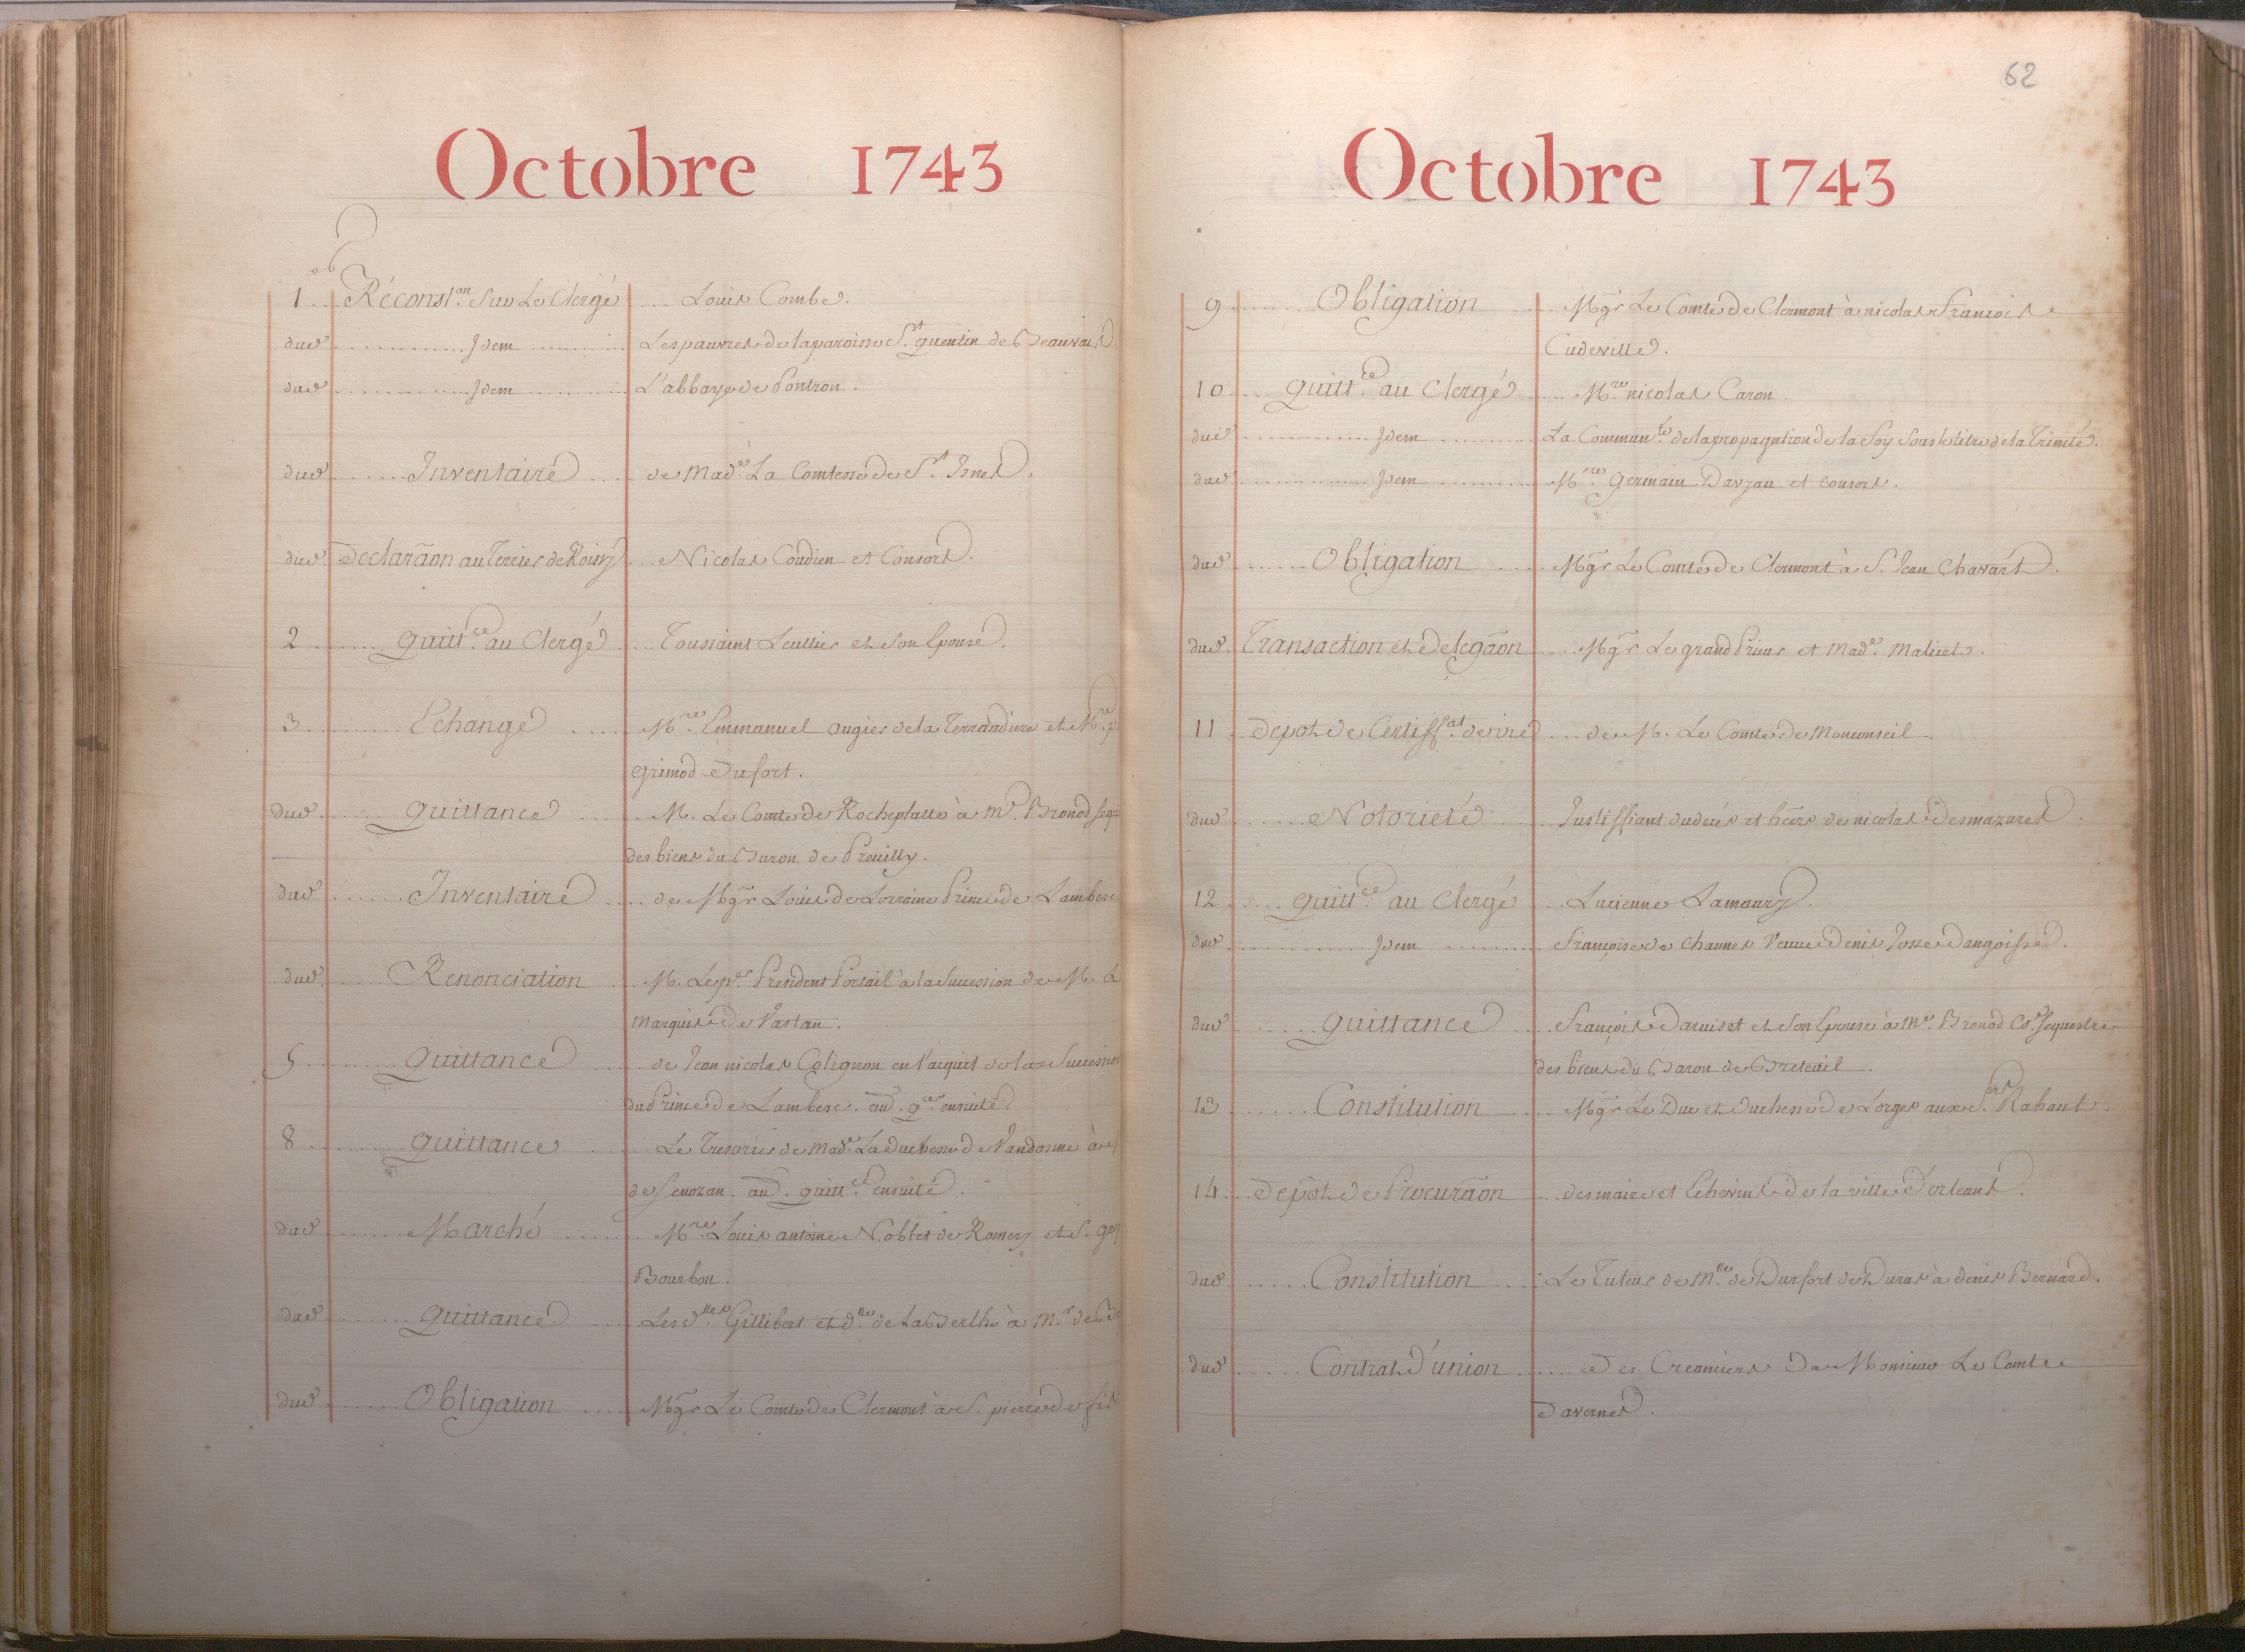 Octobre 1743
1 Réconst.on Sur Le Clergé Louis Combe.
dud. Idem Les pauvres de la paroisse St. quentin de Beauvais
dud. Idem L'abbaye de Pontron.
dud. Inventaire de Made. La Comtesse de St.
dud. Declaraõn au Terrier de Roissy Nicolas Coudien et Consors.
2 quitt.ce au Clergé Toussaint Leullier et Son Epouse.
3 Echange M.re Emmanuel augier de la Terraudiere et M.re
grimod Dufort.
dud. quittance M. Le Comte de Rocheplatte à Me. Bronod sequ
des biens du Baron de Preuilly.
dud. Inventaire de Mgr Louis de Lorraine Prince de Lambesc
dud. Renonciation M. Le p.er President Portail à la Succession de M. L
Marquis de Vastan.
5 Quittance de Jean nicolas Colignon en l'acquit de la Succession
du Prince de Lambesc. aud. q.ce ensuite.
8 quittance Le Tresorier de Made. La duchesse de Vandosme à
de Senozan. aud. quitt.ce ensuite.
dud. Marché M.re Louis antoine Noblet de Romery et S.
Bourbon.
dud. quittance Les d.lles Gillibert et d.lle de La Berlhe à M.r de
dud. Obligation Mgr Le Comte de Clermont à S. pierre de
62
Octobre 1743
9 Obligation Mgr Le Comte de Clermont à nicolas François
Cudeville.
10 quitt.ce au Clergé M.re nicolas Caron.
dud. Idem La Commun.té de la propagation de la foy Sous le titre de la Trinité.
dud. Idem M.re germain Davzau et consors.
dud. Obligation Mgr Le Comte de Clermont à S. Jean Chavart.
dud. Transaction et Delegãon Mgr Le grand Prieur et Made. Maliuet.
11 depot de Certiff.at de vie de M. Le Comte de Monconseil.
dud. Notorieté Justiffiant du decés et hẽers de nicolas Desmazures.
12 quitt.ce au Clergé Lucienne Lamoury.
dud. Idem françoise de Chaunes Veuve Denis Josse Dangoisse.
dud. quittance François Daruiset et Son Epouse à Me. Bronod Co. Sequestre
des biens du Baron de Breteuil.
13 Constitution Mgr Le Duc et duchesse de Lorges aux S.rs Rahault.
14 depõt de Procurãon des maire et Echevins de la ville d'orleans.
dud. Constitution Le Tuteur de M.lle de Durfort de Duras à denis Bernard.
dud. Contrat d'union Des Creanciers De Monsieur Le Comte
Davernes.